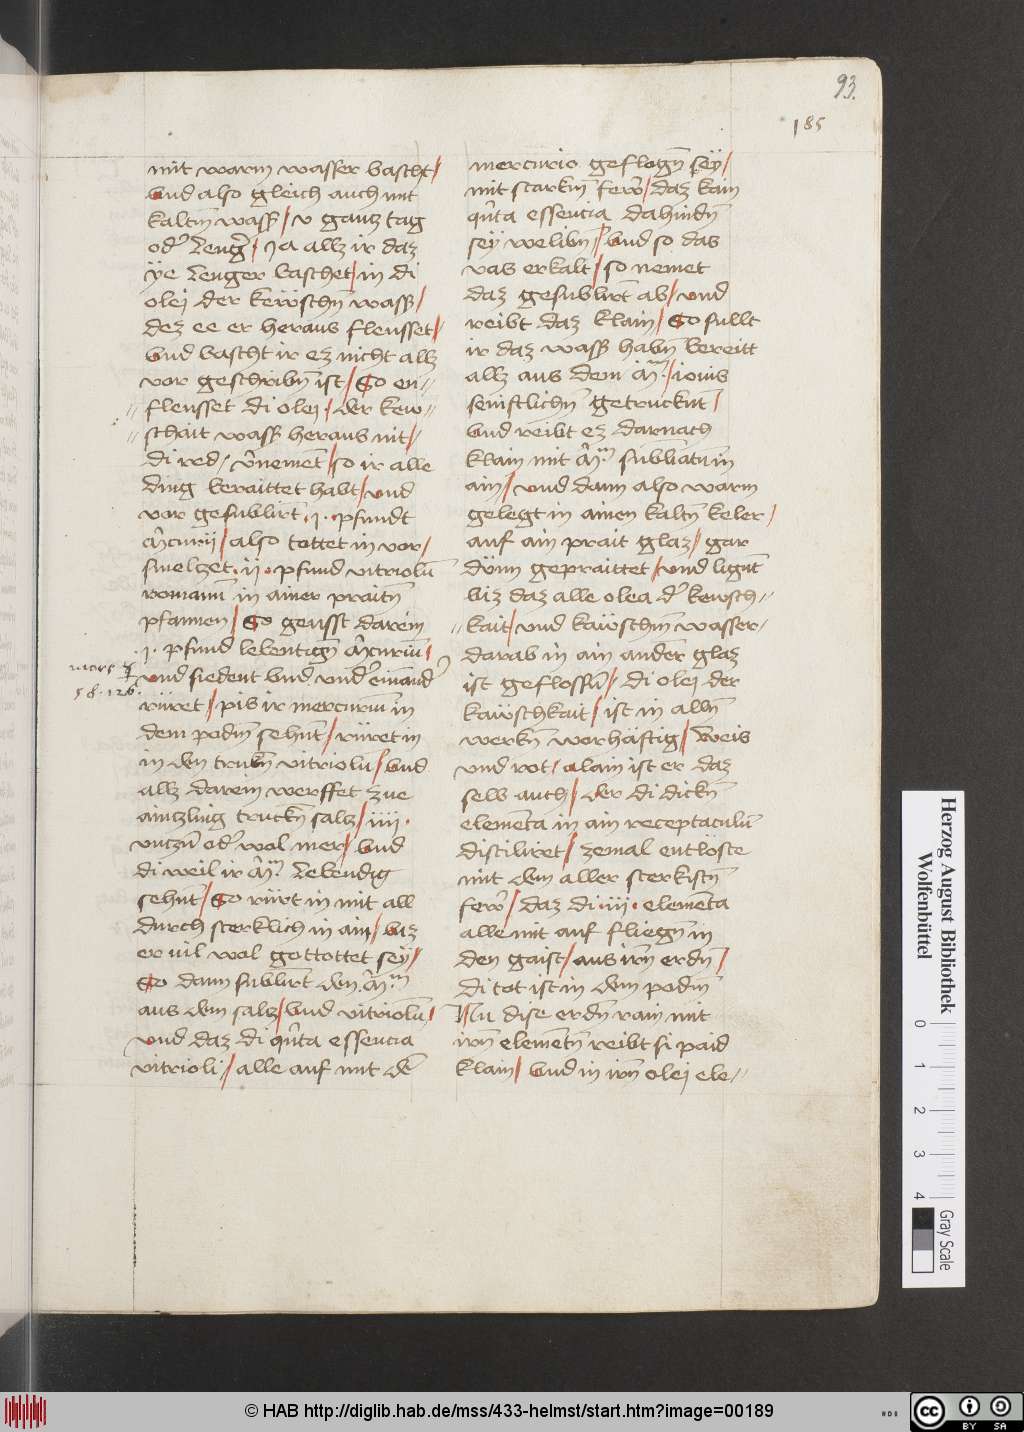 93.
185
mit warm wasser bascht/
vnd also gleich auch mit
kaltm̄ wasß / v gantz tag
odꝰ lenḡ / ꝛa allz ir daz
ÿe lenger baschet / in di
olej der kewschn̄ wasß /
dez ee er heraus flensset /
vnd bascht ir ez nicht allz
vor geschribn̄ ist / So en//
// flensset di olej / der kew//
// schait wasß heraus nit /
di red / v̄nement̄ / so ir alle
ding beraittet habt / vnd
vor gesublirt̄ . j . pfundt
m̄curij / also tottet in vor /
smelzet . ij . pfund vitriolū
romanū in ainer praitn̄
pfannen / So geusst darein
. j . pfund lebentign̄ m̄curiū /
vnd siedent vnd vndꝰ einandꝰ
rüret / pis ir mercuriū in
dem podm̄ sehnt̄ / rüret in
in den trukn̄ vitriolū / vnd
allz darein werffet zue
aintzling truckn̄ salz / iiij .
vntzn̄ odꝰ wol mer / vnd
di weil ir m̄m̄ lebendig
sehnt̄ / So rürt in mit all
durch sterklich in ain / biz
er vil wol gottottet seÿ /
So dann sublirt̄ den m̄m̄
aus dem salz / vnd vitriolū /
vnd daz di qn̄ta essencia
vitrioli / alle auf mit dē
mars
58. 126.
mercurio geflogn̄ seÿ /
mit starkm̄ fewr̄ / daz kain
qn̄ta essencia dahindn̄
seÿ welibn̄ / vnd so das
vas erkalt / so nemet
daz gesublirt̄ ab / vnd
reibt daz klain / So sullt
ir daz wasß habn̄ bereitt
allz aus dem m̄m̄ / iouis
senftlichn̄ getrucknt̄ /
vnd reibt ez darnach
klain mit m̄m̄ sublīatum̄
ain / vnd dann also warm
gelegt in ainen kaltn̄ keler /
auf ain prait glaz / gar
dünn gepraittet / vnd lignt̄
biz daz alle olea dꝰ kewsch//
// kait / vnd kaẅschm̄ wasser /
darab in ain ander glaz
ist geflossn̄ / di olej der
kaẅschkait / ist in alln̄
werkn̄ worhaftig / weis
vnd rot / alain ist er daz
selb auch / der di dickn̄
elementa in ain receptaculū
distiliret / zemal entlöste
mit dem aller sterkistn̄
fewr̄ / daz di iiij . elementa
alle mit auf fliegn̄ in
den gaist / aus irn̄ erdn̄ /
di tot ist in dem podm̄
Nu dise erdn̄ rain mit
irn̄ elementn̄ reibt si paid
klain / vnd in irn̄ olej ele//
Herzog August Bibliothek
Wolfenbüttel
0
1
2
3
4
Gray Scale
© HAB http://diglib.hab.de/mss/433-helmst/start.htm?image=00189
HAB
cc BY SA